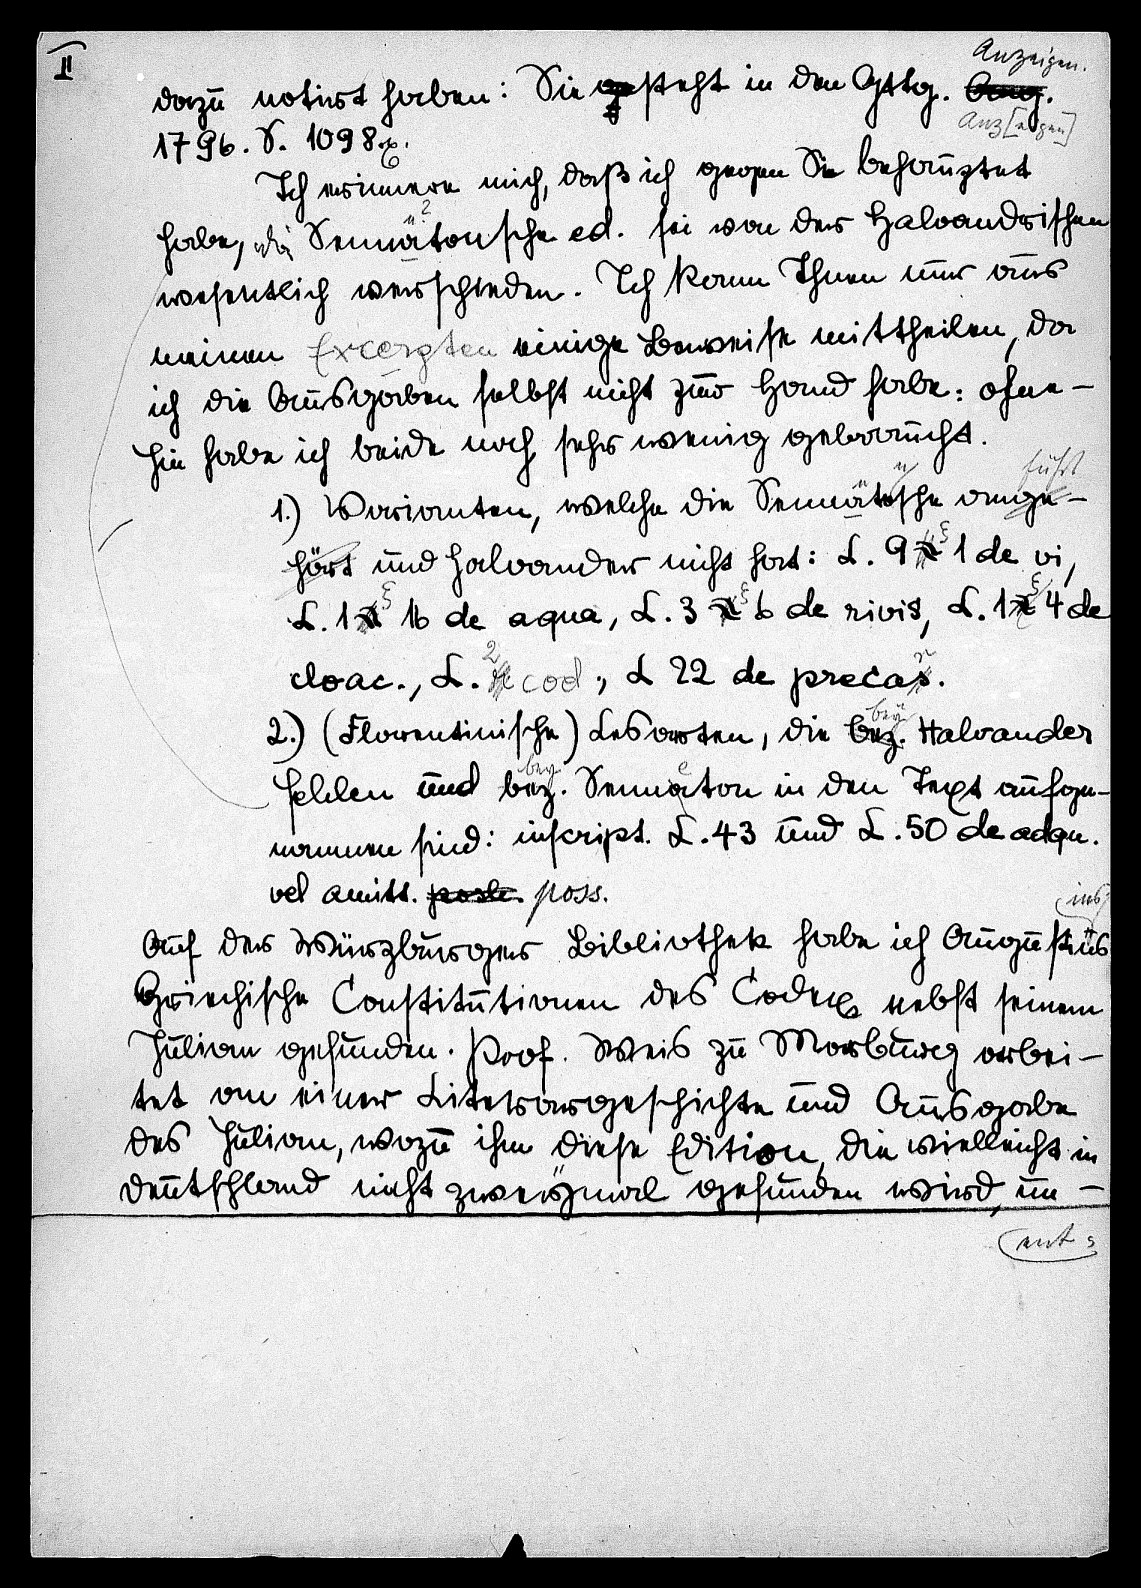 II
Anzeigen.
dazu notirt haben: Sie steht in den Gttg. Anz.
Anz[eigen]
1796. S. 1098
Ich erinnere mich, daß ich gegen Sie behauptet
habe, die Sennätonsche ed. sei von der Haloandrischen
wesentlich verschieden. Ich kann Ihnen nur aus
meinen Excerpten einige Beweise mittheilen, da
ich die Ausgaben selbst nicht zur Hand habe: ohne-
hin habe ich beide noch sehr wenig gebraucht.
führt
1.) Varianten, welche die Sennätosche ange-
hört und Haloander nicht hat: L. 9 § 1 de vi,
L. 1 § 16 de aqua, L. 3 § 6 de rivis, L. 1 § 4 de
cloac., L. 2 cod., L 22 de precar.
bey
2.) (Florentinische) Lesarten, die bez. Haloander
bey
fehlen und bez. Senneton in den Text aufge-
nommen sind: inscript. L. 43 und L. 50 de adqu.
vel amitt. poss.
ins
Auf der Würzburger Bibliothek habe ich Augustins
Griechische Constitutionen des Codex nebst seinem
Julian gefunden. Prof. Weis zu Marburg arbei-
tet an einer Literargeschichte und Ausgabe
des Julian, wozu ihm diese Edition, die vielleicht in
Deutschland nicht zweÿmal gefunden wird, un-
ent=